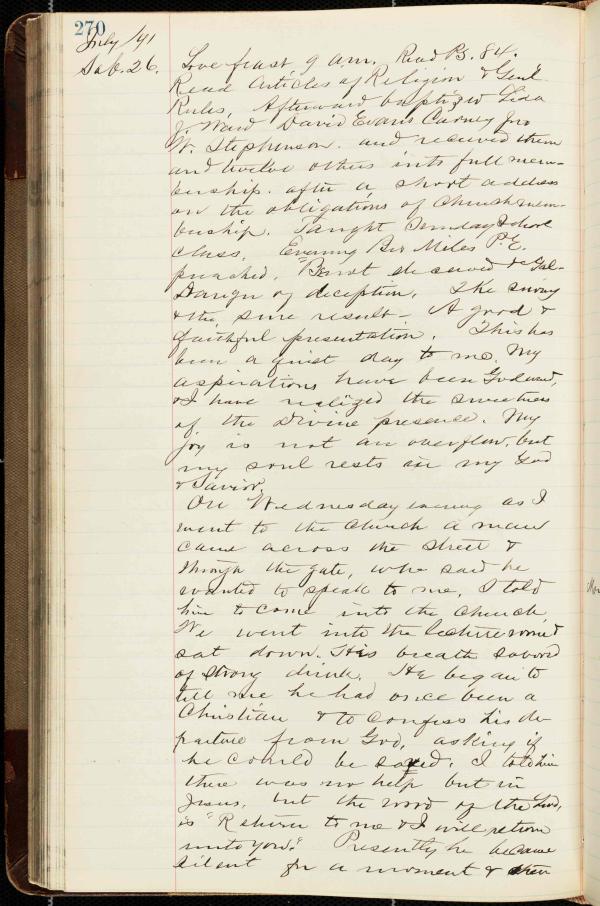 270
July /91
Sab. 26. Love feast 9 a.m. Read Ps. 84.
Read Articles of Religion & Genl
Rules, Afterward baptized Lida
J. Ward David Evans Carney Jno
W. Stephenson. and received them
and twelve others into full mem-
bership. after a short address
on the obligations of Church mem-
bership. Taught Sunday School
class. Evening Bro Miles P.E.
preached, "Be not deceived &c Gal-
Danger of deception. The sowing
& the sure result - A good &
faithful presentation. This has
been a quiet day to me. My
aspirations have been Godward,
& I have realized the sweetness
of the Divine presence. My
joy is not an overflow, but
my soul rests in my God
& Savior.
On Wednesday evening as I
went to the church a man
came across the street &
through the gate, who said he
wanted to speak to me, I told
him to come into the church
We went into the lecture room &
sat down. His breath savored
of strong drink. He began to
tell me he had once been a
Christian & to confess his de-
parture from God, asking if
he could be saved. I told him
there was no help but in
Jesus, but the word of the Lord,
is "Return to me & I will return
unto you." Presently he became
silent for a moment & then